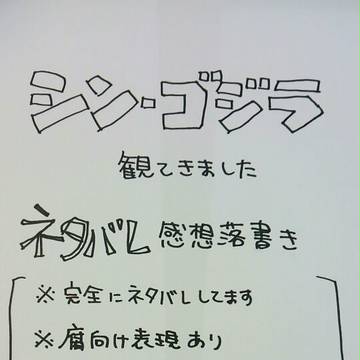 シン・ゴジラ
観てきました
ネタバレ感想落書き
※完全にネタバレしてます
※腐向け表現あり